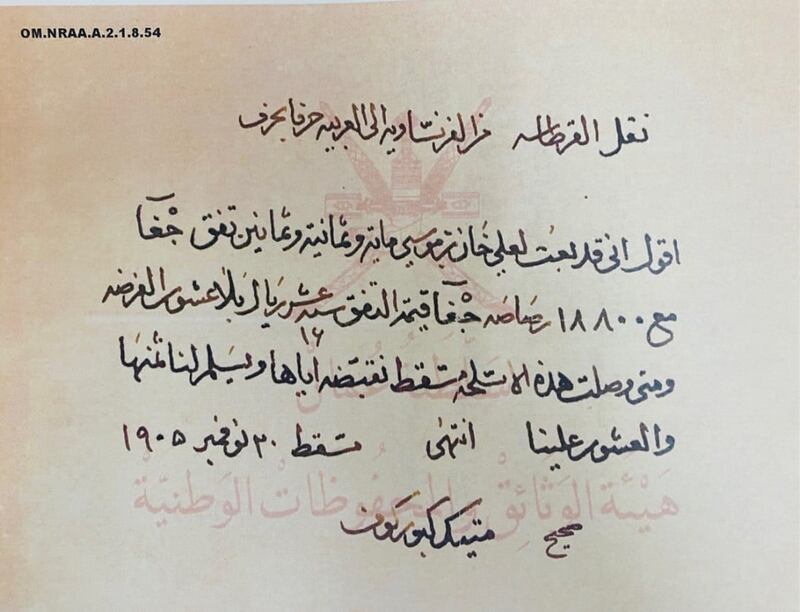 OM.NRAA.A.2.1.8.54
نقل القرطاسه من الفرنساويه الى العربيه حرفا بحرف
اقول انى قد بعت لعلي خان بن موسى ماية وثمانية وثمانين تفق جفا
مع ١٨٨٠٠ رصاصه جفا قيمة التفق سته عشر ريال بلا عشور الفرضه
١٦
ومتى وصلت هذه الاسلحة مسقط نقبضه اياها ويسلم لنا ثمنها
والعشور علينا انتهى مسقط ٣٠ نوفمبر ١٩٠٥
صحيح
سلطنة عمان
هيئة الوثائق والمحفوظات الوطنية